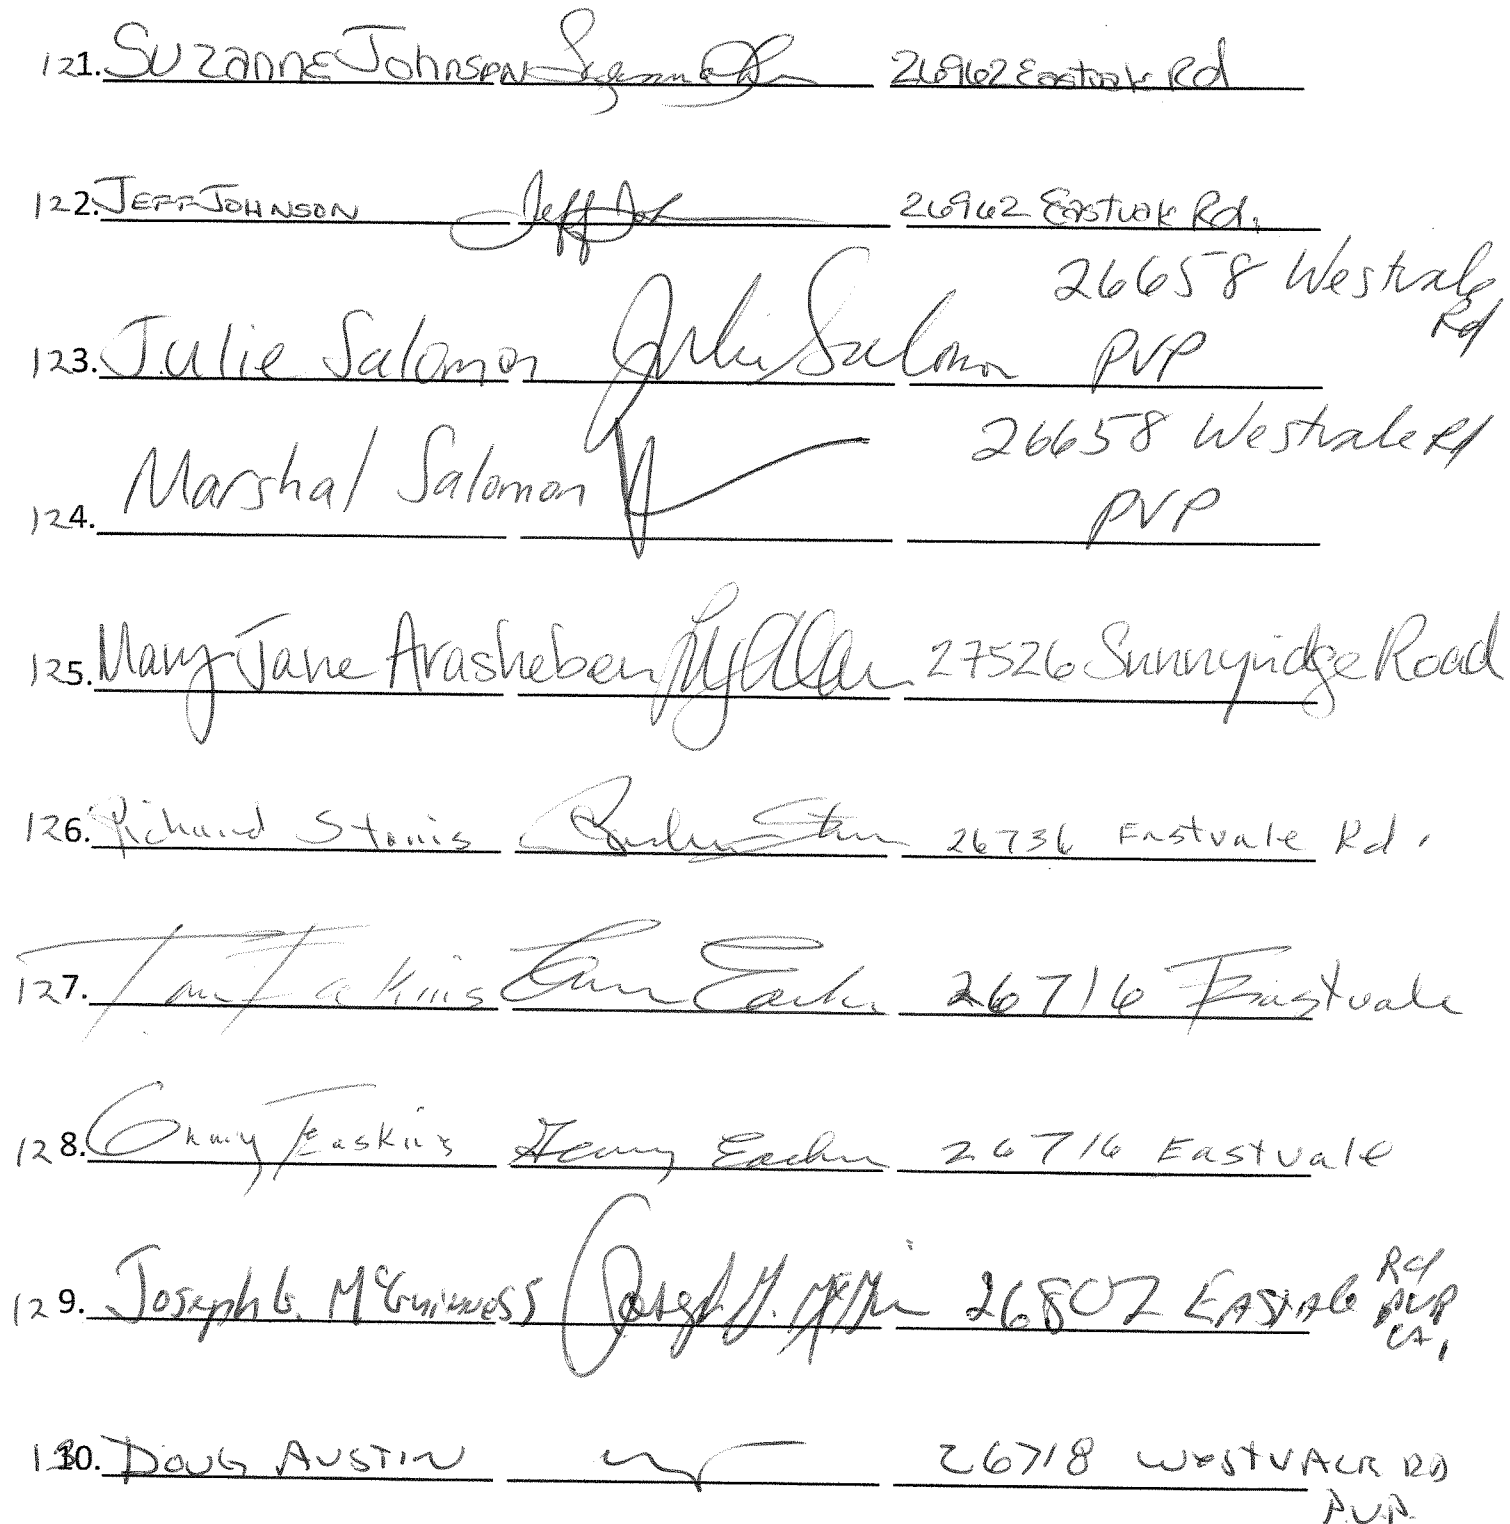 121. Suzanne Johnson Suzanne 26962 Eastvale Rd
122. Jeff Johnson Jeff Joh 26962 Eastvale Rd.
26658 Westvale
Rd
123. Julie Salomon Julie Salomon PVP
26658 Westvale Rd
124. Marshal Salomon
PVP
125. Mary Jane Arasheben 27526 Sunnyridge Road
126. Richard Stonis 26736 Eastvale Rd.
127. Tom Easkins 26716 Eastvale
128. Ginny Easkins Ginny 26716 Eastvale
129. Joseph G. McGuinness Joseph G. 26807 Eastvale Rd
PVP
CA,
130. Doug Austin 26718 Westvale RD
P.V.P.